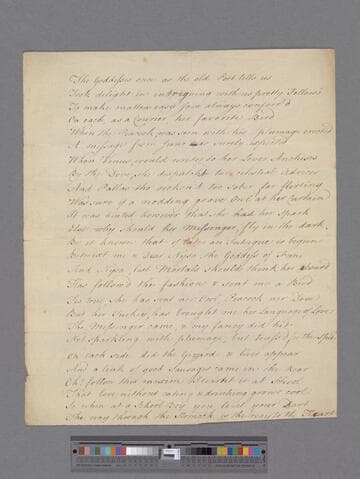 The Goddesses once as the old Poet tells us
Took delight in intriguing with us pretty Fellows
To make matters easy Jove always conferr'd
On each as a Courier her favorite Bird
When the Peacock was seen with his plumage erected
A message from Juno was surely expected
When Venus would write to her Lover Anchises
By the Dove she dispatch'd her celestial Advices
And Pallas tho reckon'd too sober for flirting
Was sure of a nodding grave Owl at her Curtain
It was hinted however that she had her Spark
Else why should her Messenger fly in the dark
Be it known that of late an Intrigue is begun
Betwixt me & dear Nysa the Goddess of
And Nysa lest Mortals should think her absurd
Has follow'd the fashion & sent me a Bird
Tis true she has sent me no Owl Peacock nor Dove
But her Turkey has brought me her Language of Love
The Messenger came, & my fancy did hit
Not sparkling with plumage, but truss'd for the Spit
On each side did the Gizzard & Liver appear
And a link of good Sausages came in the Rear
Oh! follow this maxim & let it at School
That Love without eating & drinking grows cool
So when at a you level your Dart
The way through the Stomach is the way to the Heart